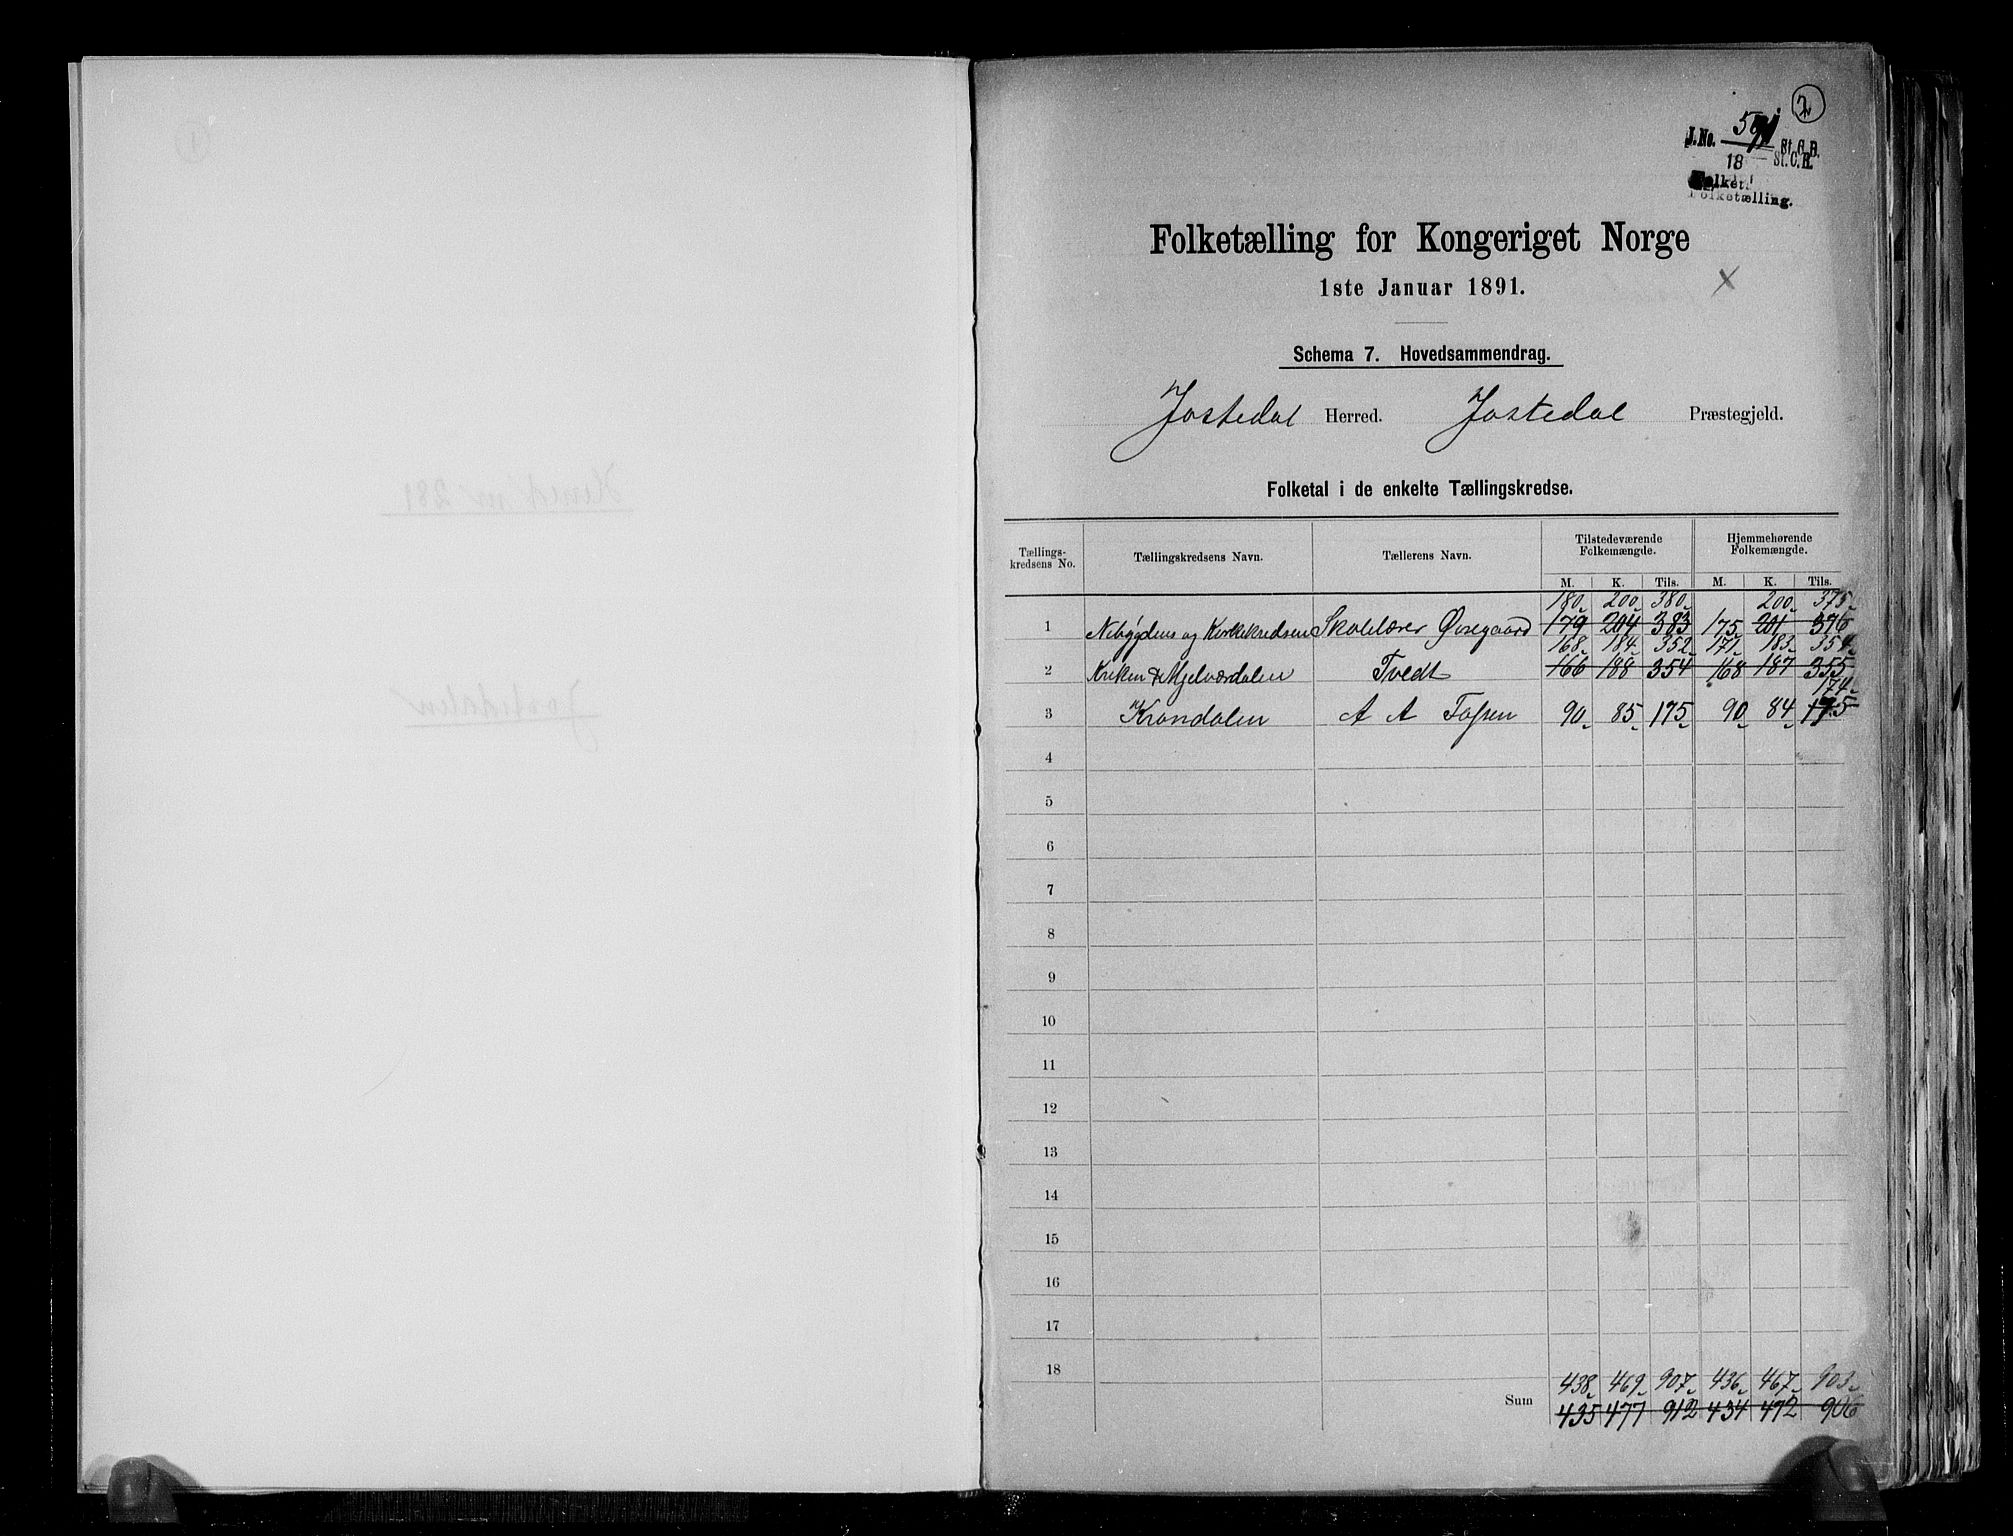 2
J.No. St.C.B.
18 St.C.B.
Folketælling.
Folketælling for Kongeriget Norge
1ste Januar 1891.
Schema 7. Hovedsammendrag.
Jostedal Herred. Jostedal Præstegjeld.
Folketal i de enkelte Tællingskredse.
Tællings-kredsens No. Tællingskredsens Navn. Tællerens Navn. Tilstedeværende Folkemængde. Hjemmehørende Folkemængde.
M. K. Tils. M. K. Tils.
180 200 380 200 375
1 Nebygdens og Kirkekredsen Skolelærer Øvregaard 179 204 383 175 201 376
168 184 352 171 183 354
2 Kriken & Mjelværdalen Tvedt 166 188 354 168 187 355
174
3 Krondalen A A Fossen 90 85 175 90 84 175
4
5
6
7
8
9
10
11
12
13
14
15
16
17
18
438 469 907 436 467 903
Sum 435 477 912 434 472 906
Herred nr 281
Jostedalen
1